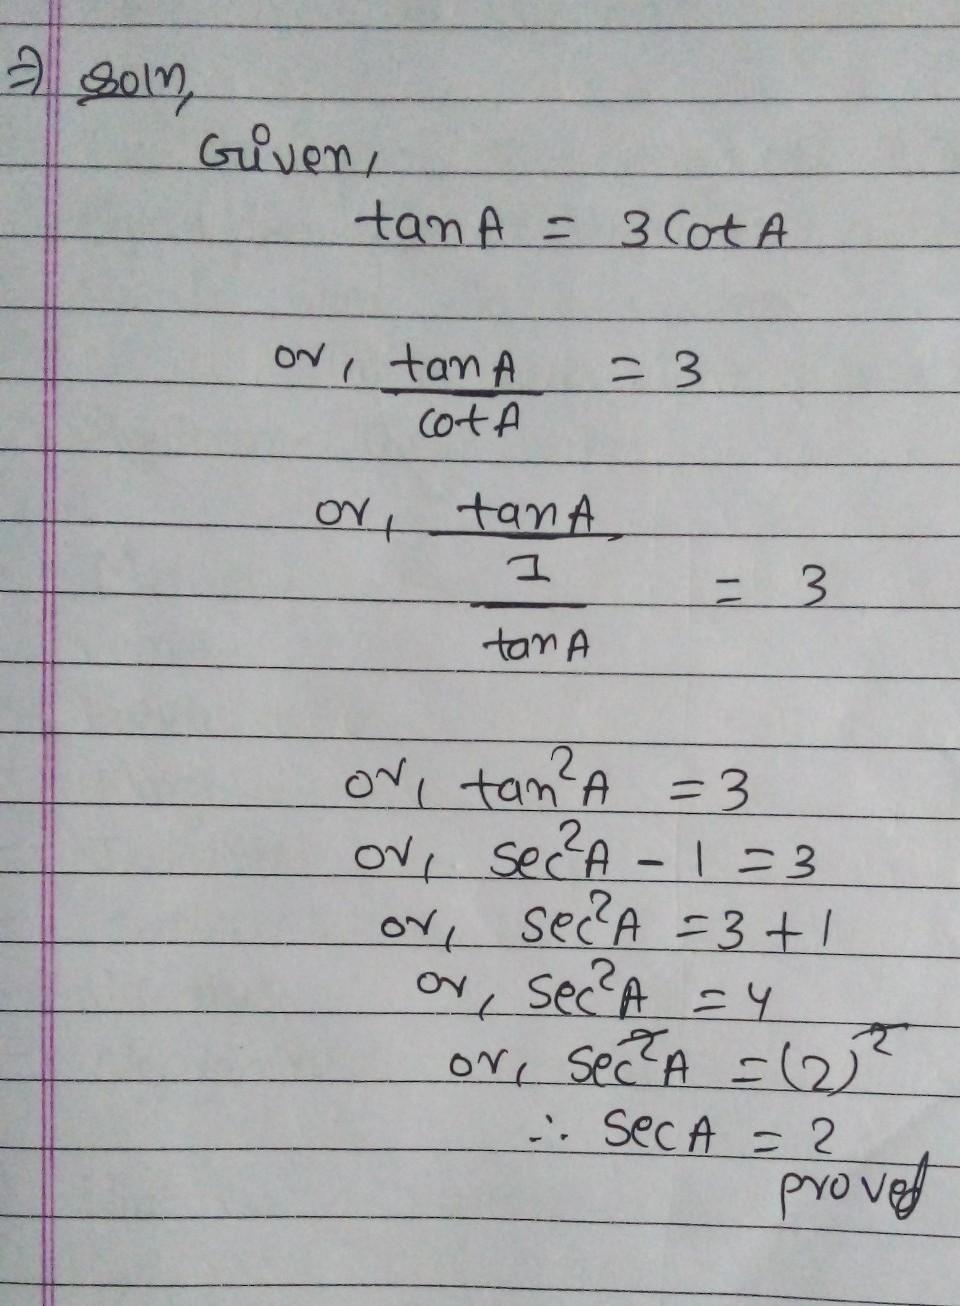 ⇒ Soln,
Given,
tan A = 3 cot A
or, tan A / cot A = 3
or, tan A / (1 / tan A) = 3
or, tan²A = 3
or, sec²A - 1 = 3
or, sec²A = 3 + 1
or, sec²A = 4
or, sec²A = (2)²
∴ sec A = 2
proved